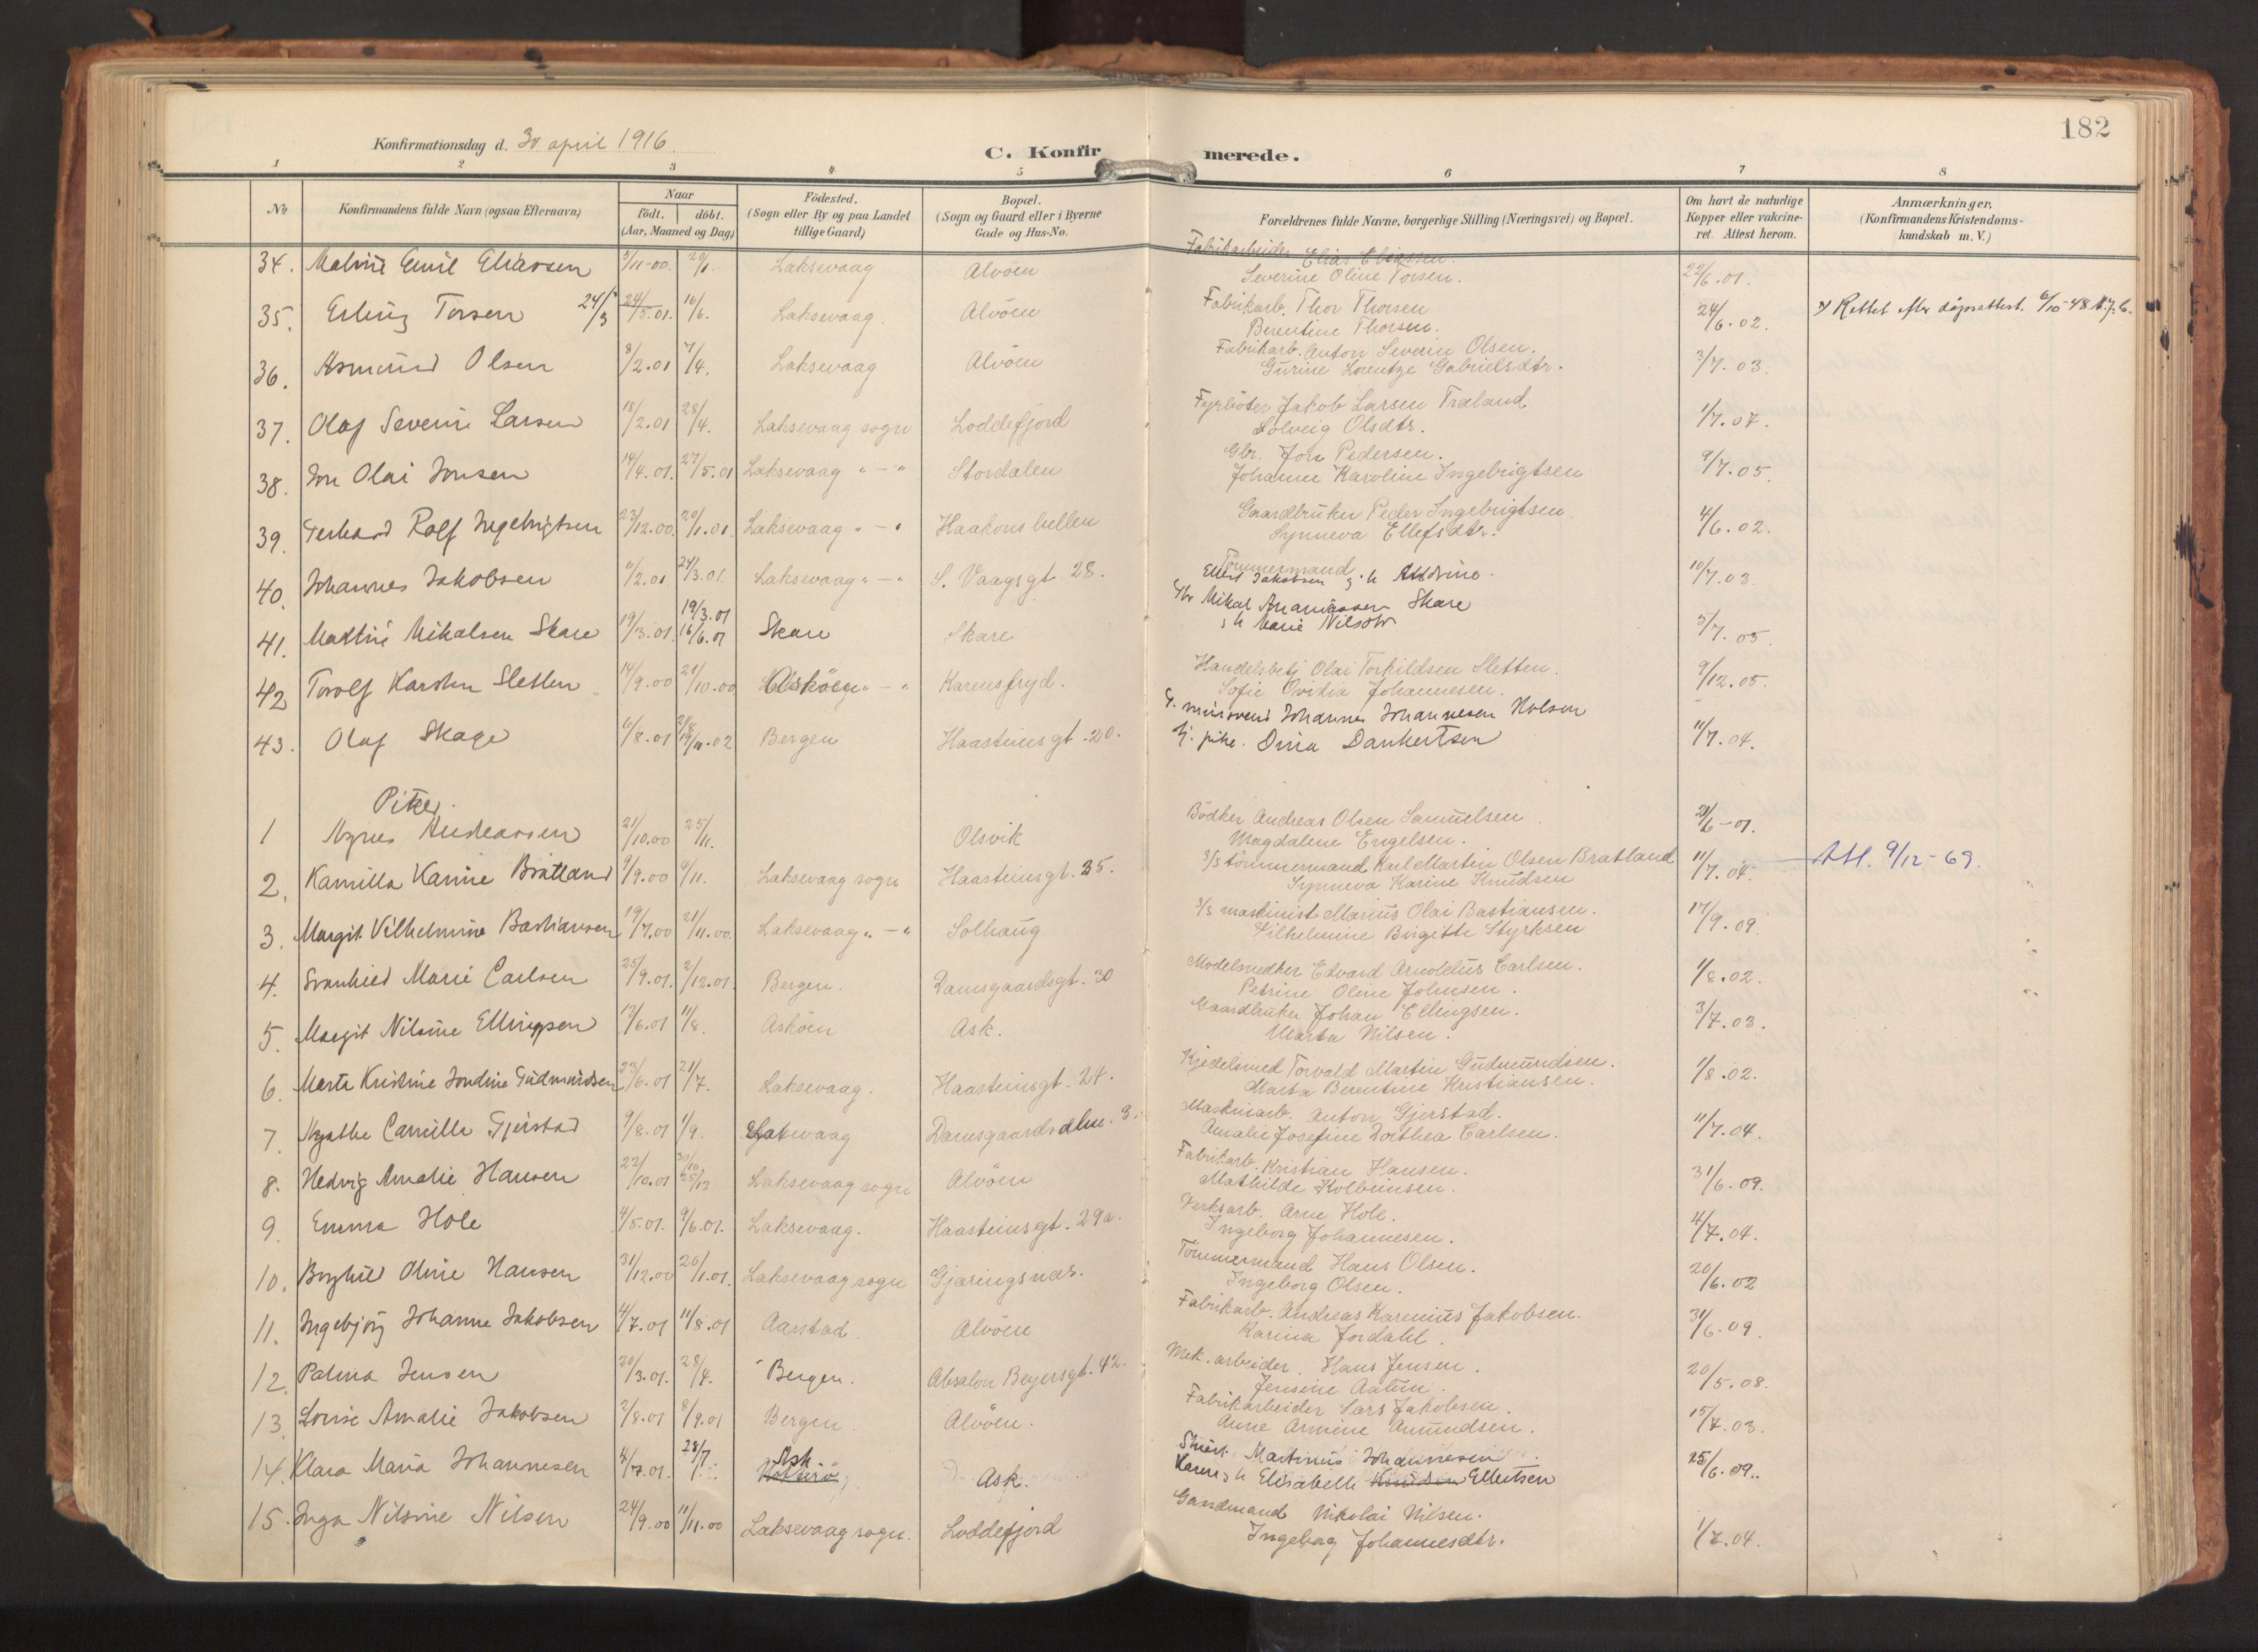 182
Konfirmationsdag d. 30 april 1916.
C. Konfirmerede.
1 2 3 4 5 6 7 8
No Konfirmandens fulde Navn (ogsaa Efternavn)
Naar födt. döbt. (Aar, Maaned og Dag)
Födested. (Sogn eller By og paa Landet tillige Gaard)
Bopæl. (Sogn og Gaard eller i Byerne Gade og Hus-No.
Forældrenes fulde Navne, borgerlige Stilling (Næringsvei) og Bopæl.
Om havt de naturlige Kopper eller vakcineret. Attest herom.
Anmærkninger. (Konfirmandens Kristendomskundskab m. V.)
34. Emil Eliassen 5/11-00. 20/1. Laksevaag Alvöen Fabrikarbeider Elias Eliassen. 22/6.01.
Severine Oline Torsen.
35. Erling Torsen 24/3 24/5.01. 16/6. Laksevaag. Alvöen Fabrikarb. Thor Thorsen 24/6.02. Rettet efter dåpsattest. 6/10-48
Berentine Thorsen.
36. Asmund Olsen 8/2.01 7/4. Laksevaag Alvöen Fabrikarb. Anton Severin Olsen. 3/7.03.
Gurine Lorentze Gabrielsdtr.
37. Olaf Severin Larsen 18/2.01 28/4. Laksevaag sogn Loddefjord Fyrböter Jakob Larsen Træland 1/7.07.
Solveig Olsdtr.
38. Jon Olai Jonsen 14/4.01. 27/5.01 Laksevaag " - " Stordalen Gbr. Jon Pedersen. 9/7.05.
Johanne Karoline Ingebrigtsen
39. Rolf Ingebrigtsen 23/12.00. 20/1.01. Laksevaag " - " Haakonshellen Gaardbruker Peder Ingebrigtsen. 4/6.02.
Synneva Ellefsdtr.
40. Johannes Jakobsen 6/2.01. 24/3.01. Laksevaag " - " S. Vaagsgt. 28. Tömmermand 10/7.03.
Ellert Jakobsen
41. Mikalsen Skare 19/3.01. 19/3.01 16/6.01 Skare Skare Gbr Mikal Ananiassen Skare 5/7.05.
Marie Nilsdtr
42 Torolf Karsten Sletten 14/9.00 21/10.00 Asköen " - " Karensfryd. Handelsbetj Olai Torkildsen Sletten. 9/12.05.
Sofie Ovidia Johannesen.
43. Olaf Skage 6/8.01 Bergen Haasteinsgt. 20. Johannes Johannesen Holsen 11/7.04.
pike. Dina Dankertsen
Piker.
1 Agnes Andreassen 21/10.00 25/11. Olsvik Bödker Andreas Olsen Samuelsen 21/6-01.
Magdalene Engelsen.
2. Kamilla Karine Bratland 9/9.00 4/11. Laksevaag sogn Haasteinsgt. 35. S/S tömmermand Karl Martin Olsen Bratland 11/7.04. Att. 9/12-69.
Synneva Karine Knudsen
3. Margit Vilhelmine Bastiansen 19/7.00 21/11.00. Laksevaag " - " Solhaug S/S maskinist Marius Olai Bastiansen. 17/9.09.
Vilhelmine Birgitte Styrksen
4. Svanhild Marie Carlsen 25/9.01. 2/12.01. Bergen. Damsgaardsgt. 30 Modelsnedker Edvard Arnoldus Carlsen. 1/8.02.
Petrine Oline Johnsen.
5. Margit Nilsine Ellingsen 13/6.01 11/8. Asköen Ask. Gaardbruker Johan Ellingsen. 3/7.03.
Marta Nilsen.
6. Marta Kristine Jondine Gudmundsen 23/6.01 21/7. Laksevaag. Haasteinsgt. 24. Kjedelsmed Torvald Martin Gudmundsen. 1/8.02.
Marta Berentine Kristiansen.
7. Agathe Camilla Gjerstad 9/8.01 1/9. Laksevaag Damsgaards Maskinarb. Anton Gjerstad. 11/7.04.
Amalie Josefine Dorthea Carlsen.
8. Hedvig Amalie Hansen 22/10.01 30/10 25/12 Laksevaag sogn Alvöen Fabrikarb. Kristian Hansen. 31/6.09.
Mathilde Kolbeinsen.
9. Emma Hole 4/5.01. 9/6.01. Laksevaag. Haasteinsgt. 29a. Verksarb. Arne Hole. 4/7.04.
Ingeborg Johannesen.
10. Borghild Oline Hansen 31/12.00 20/1.01. Laksevaag sogn Gjæringsnæs. Tömmermand Hans Olsen. 20/6.02
Ingeborg Olsen.
11. Ingebjörg Johanne Jakobsen 4/7.01 11/8.01 Aarstad. Alvöen Fabrikarb. Andreas Karenius Jakobsen. 31/6.09.
Karina Jordahl.
12. Palma Jensen 20/3.01. 28/4. Bergen. Absalon Beyersgt. 42. Mek. arbeider. Hans Jensen. 20/5.08.
Jensine
13. Louise Amalie Jakobsen 2/8.01 8/9.01 Bergen. Alvöen. Fabrikarbeider Lars Jakobsen. 15/7.03.
Anne Armine Amundsen.
14. Klara Maria Johannesen 4/7.01. 28/7 Ask Ask. Martinus Johannesen 25/6.09.
Karen Elisabeth Knudsen Ellertsen
15. Inga Nilsine Nilsen 24/9.00 11/11.00 Laksevaag sogn. Loddefjord Gaardmand Nikolai Nilsen. 1/7.04.
Ingeborg Johannesdtr.